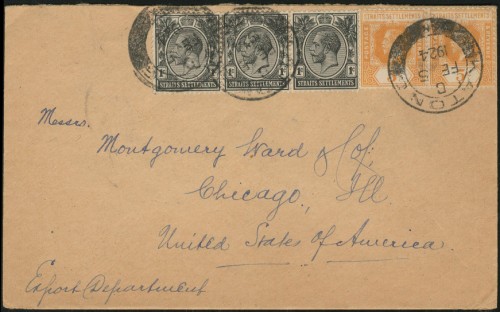 1c 1c 1c
STRAITS SETTLEMENTS STRAITS SETTLEMENTS STRAITS SETTLEMENTS
STRAITS SETTLEMENTS STRAITS SETTLEMENTS
C
FE 5
1924
Messrs.
Montgomery Ward & Co;
Chicago, Ill
United States of America.
Export Department